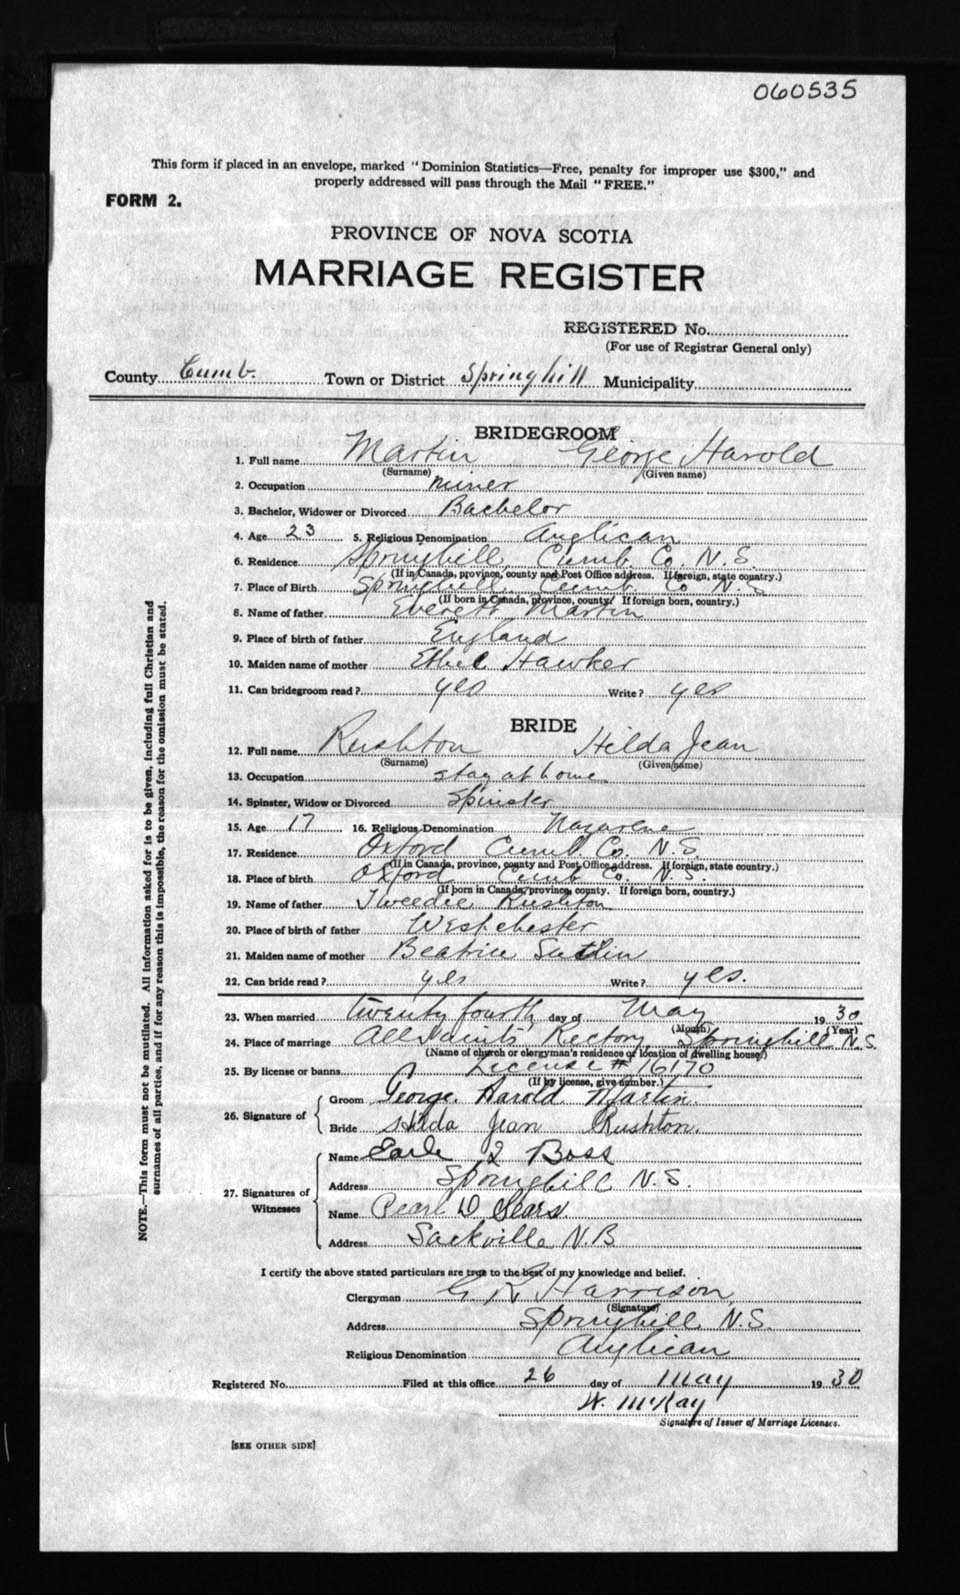 060535
This form if placed in an envelope, marked "Dominion Statistics—Free, penalty for improper use $300," and
properly addressed will pass through the Mail "FREE."
FORM 2.
PROVINCE OF NOVA SCOTIA
MARRIAGE REGISTER
REGISTERED No.
(For use of Registrar General only)
County Cumb. Town or District Springhill Municipality
BRIDEGROOM
1. Full name Martin George Harold
(Surname) (Given name)
2. Occupation miner
3. Bachelor, Widower or Divorced Bachelor
4. Age 23 5. Religious Denomination Anglican
6. Residence Springhill, Cumb. Co. N.S.
(If in Canada, province, county and Post Office address. If foreign, state country.)
7. Place of Birth Springhill Cumb Co N.S
(If born in Canada, province, county. If foreign born, country.)
8. Name of father Everett Martin
9. Place of birth of father England
10. Maiden name of mother Ethel Hawker
11. Can bridegroom read? yes Write? yes
BRIDE
12. Full name Rushton Hilda Jean
(Surname) (Given name)
13. Occupation stay at home
14. Spinster, Widow or Divorced Spinster
15. Age 17 16. Religious Denomination Nazarene
17. Residence Oxford Cumb Co. N.S.
(If in Canada, province, county and Post Office address. If foreign, state country.)
18. Place of birth Oxford Cumb Co. N.S.
(If born in Canada, province, county. If foreign born, country.)
19. Name of father Tweedie Rushton
20. Place of birth of father Westchester
21. Maiden name of mother Beatrice
22. Can bride read? yes Write? yes.
23. When married twenty fourth day of May 1930
(Month) (Year)
24. Place of marriage All Saints Rectory, Springhill N.S.
(Name of church or clergyman's residence or location of dwelling house)
25. By license or banns License # 76170
(If by license, give number.)
26. Signature of
Groom George Harold Martin
Bride Hilda Jean Rushton.
27. Signatures of Witnesses
Name Earle Boss
Address Springhill N.S.
Name Pearl D Sears
Address Sackville N.B
I certify the above stated particulars are true to the best of my knowledge and belief.
Clergyman G. R. Harrison
(Signature)
Address Springhill N.S.
Religious Denomination Anglican
Registered No. Filed at this office 26 day of May 1930
W. McKay
Signature of Issuer of Marriage Licenses.
[SEE OTHER SIDE]
NOTE.—This form must not be mutilated. All information asked for is to be given, including full Christian and
surnames of all parties, and if for any reason this is impossible, the reason for the omission must be stated.